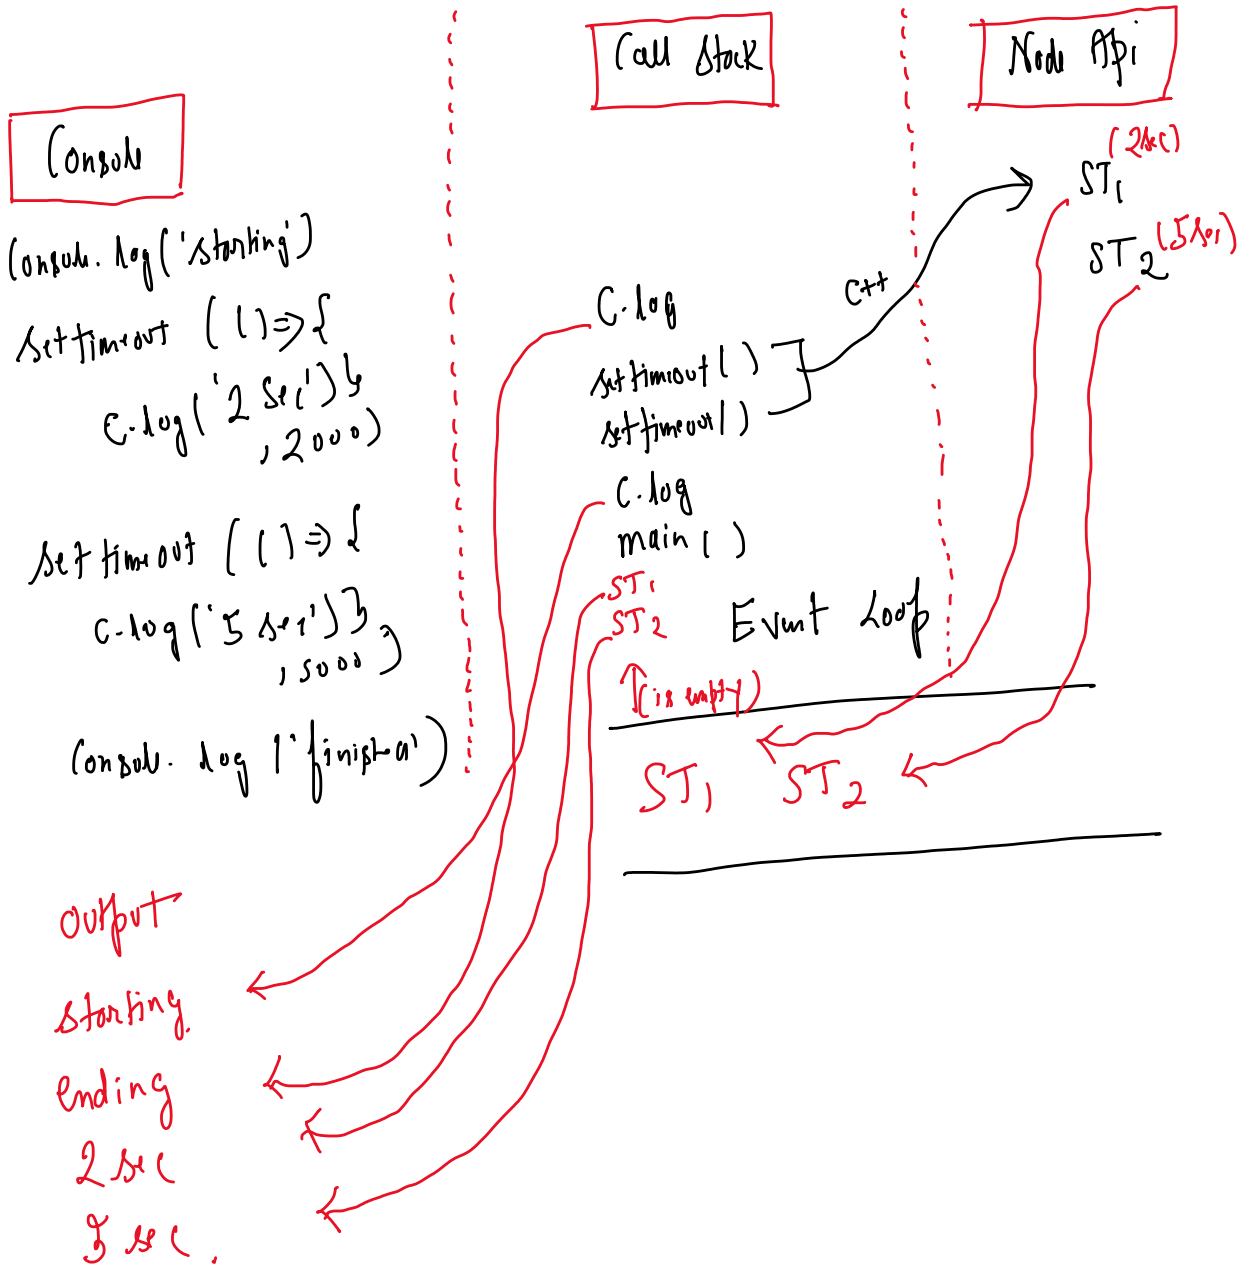 Console
Console.log('starting')
settimeout (()=>{
C.log('2 sec')}
,2000)
settimeout (()=>{
C.log('5 sec')}
,5000)
Console.log('finished')
Output
Starting
Ending
2 sec
5 sec.
Call Stack
C.log
settimeout()
settimeout()
C.log
main()
ST1
ST2
(is empty)
C++
Node Api
ST1 (2sec)
ST2 (5sec)
Event Loop
ST1 ST2